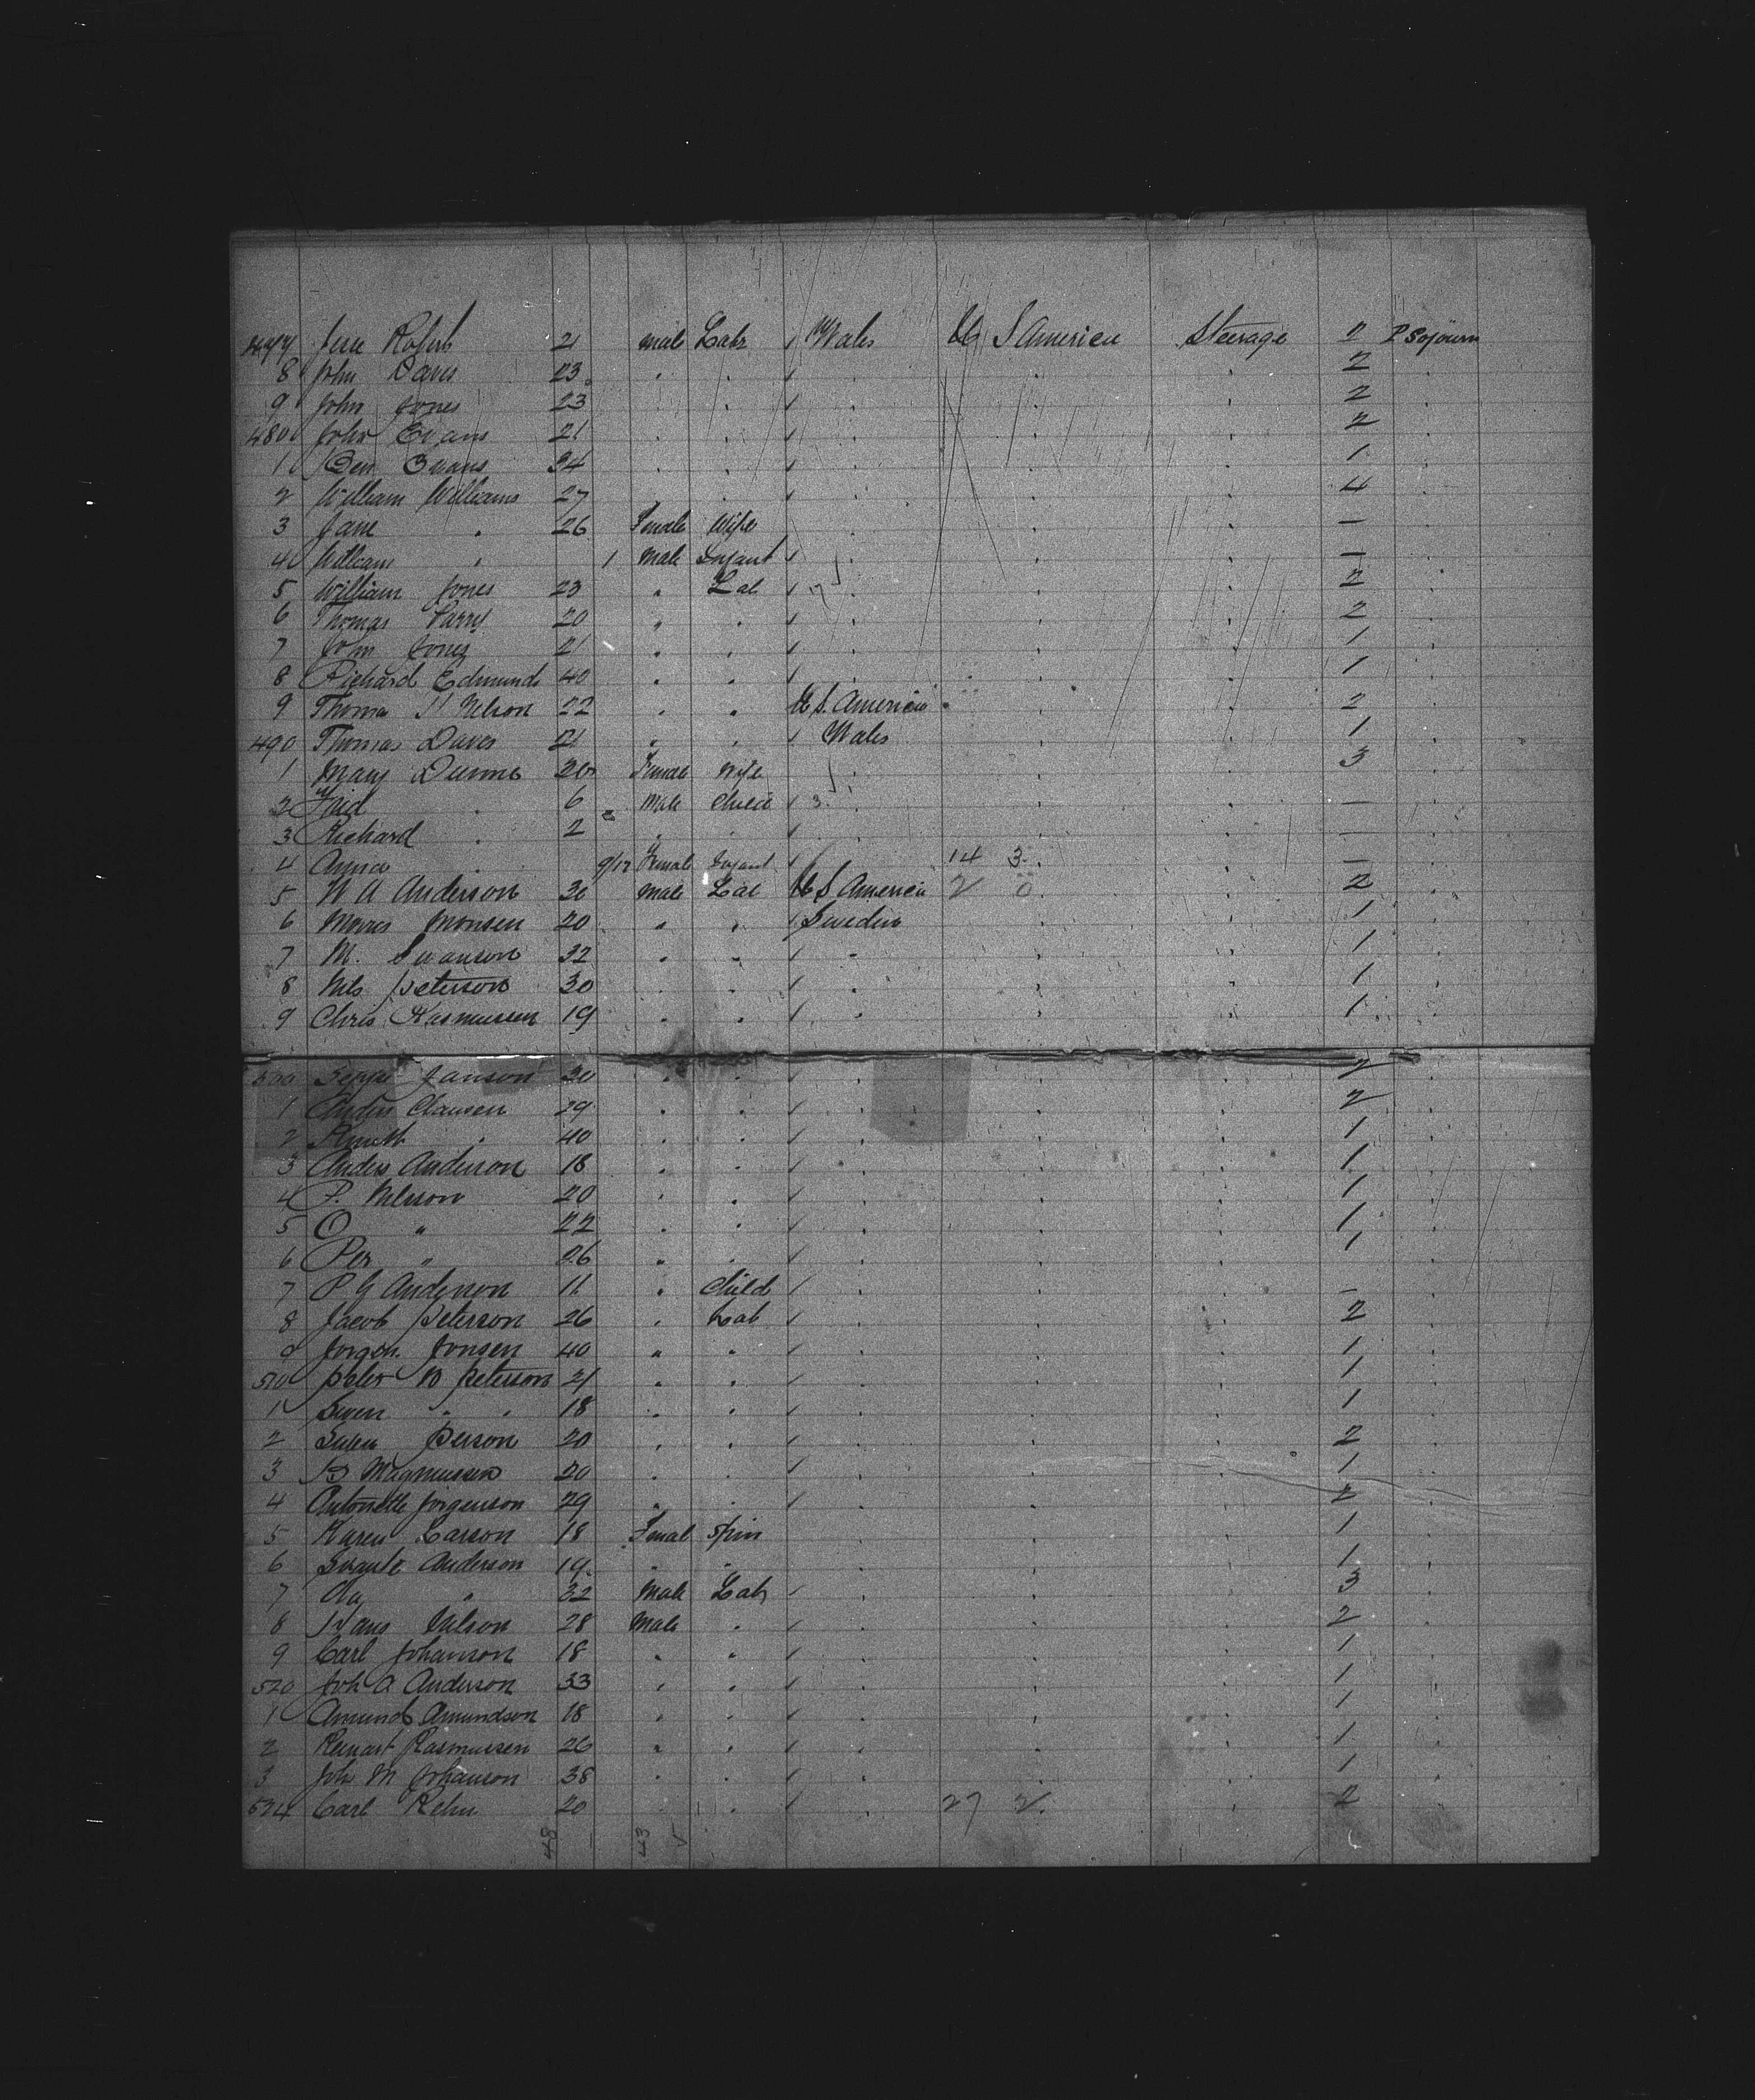 477 Jese Roberts 21 male Labr / Wales U S America Steerage 2 P Sojourn
8 John Davis 23 " " / " " " 2 "
9 John Jones 23 " " / " " " 2 "
480 John Evans 21 " " / " " " 2 "
1 Ben Evans 34 " " / " " " 1 "
2 William Williams 27 " " / " " " 4 "
3 Jane " 26 Female Wife " " " —
4 William " 1 male Infant / " " " —
5 William Jones 23 " Lab / " " " 2 "
6 Thomas Parry 20 " " / " " " 2 "
7 John Jones 21 " " / " " " 1 "
8 Richard Edmunds 40 " " / " " " 1 "
9 Thomas H Nelson 22 " " U S. America " " 2 "
490 Thomas Davis 21 " " / Wales " " 1 "
1 Mary 20 Female Wife " " " 3 "
2 " 6 Male Child / 3 " " — "
3 Richard " 2 " " / " " " — "
4 Anna " 9/12 Female Infant / 14 3 " — "
5 W A Anderson 30 male Lab U S America 2 0 " 2 "
6 Monsen 20 " " / Sweden " " 1 "
7 M. Swanson 32 " " / " " " 1 "
8 Nils Peterson 30 " " / " " " 1 "
9 Chris Rasmussen 19 " " / " " " 1 "
500 Jeppe Janson 20 " " / " " " 2 "
1 Anders Clausen 29 " " / " " " 2 "
2 " 40 " " / " " " 1 "
3 Anders Anderson 18 " " / " " " 1 "
4 P. Nelsson 20 " " / " " " 1 "
5 O " 22 " " / " " " 1 "
6 Per " 26 " " / " " " 1 "
7 P G Anderson 11 " Child / " " " — "
8 Jacob Peterson 26 " Lab / " " " 2 "
9 Jorgen Jonsen 40 " " / " " " 1 "
510 Peter B Peterson 21 " " / " " " 1 "
1 Swen " " 18 " " / " " " 1 "
2 Person 20 " " / " " " 2 "
3 B Magnussen 20 " " / " " " 1 "
4 Antonette Jorgenson 29 " " / " " " 2 "
5 Karen Larson 18 Femal Spin " " " 1 "
6 Svante Anderson 19 " " " " " 1 "
7 Ola " 32 Male Labr / " " " 3 "
8 Hans Nilson 28 Male " / " " " 2 "
9 Carl Johanson 18 " " / " " " 1 "
520 Joh A Anderson 33 " " / " " " 1 "
1 Amund Amundson 18 " " / " " " 1 "
2 Reinart Rasmussen 26 " " / " " " 1 "
3 Joh M Johanson 38 " " / " " " 1 "
524 Carl Rehn 20 " " / " 27 2 " 2 "
48 43 5